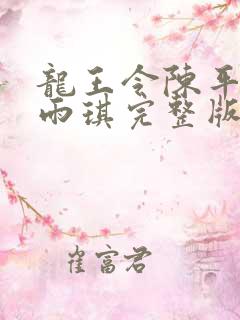 龍王令陳平
雨琪完整版
崔富君